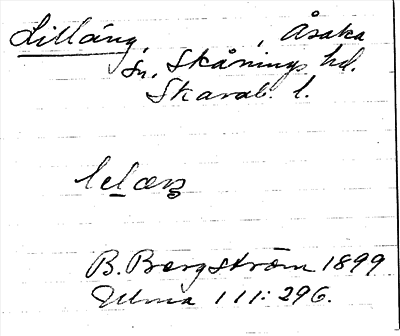 Lilläng, , Åsaka
sn, Skånings hd.
Skarab. l.
B. Bergström 1899
Ulma 111: 296.